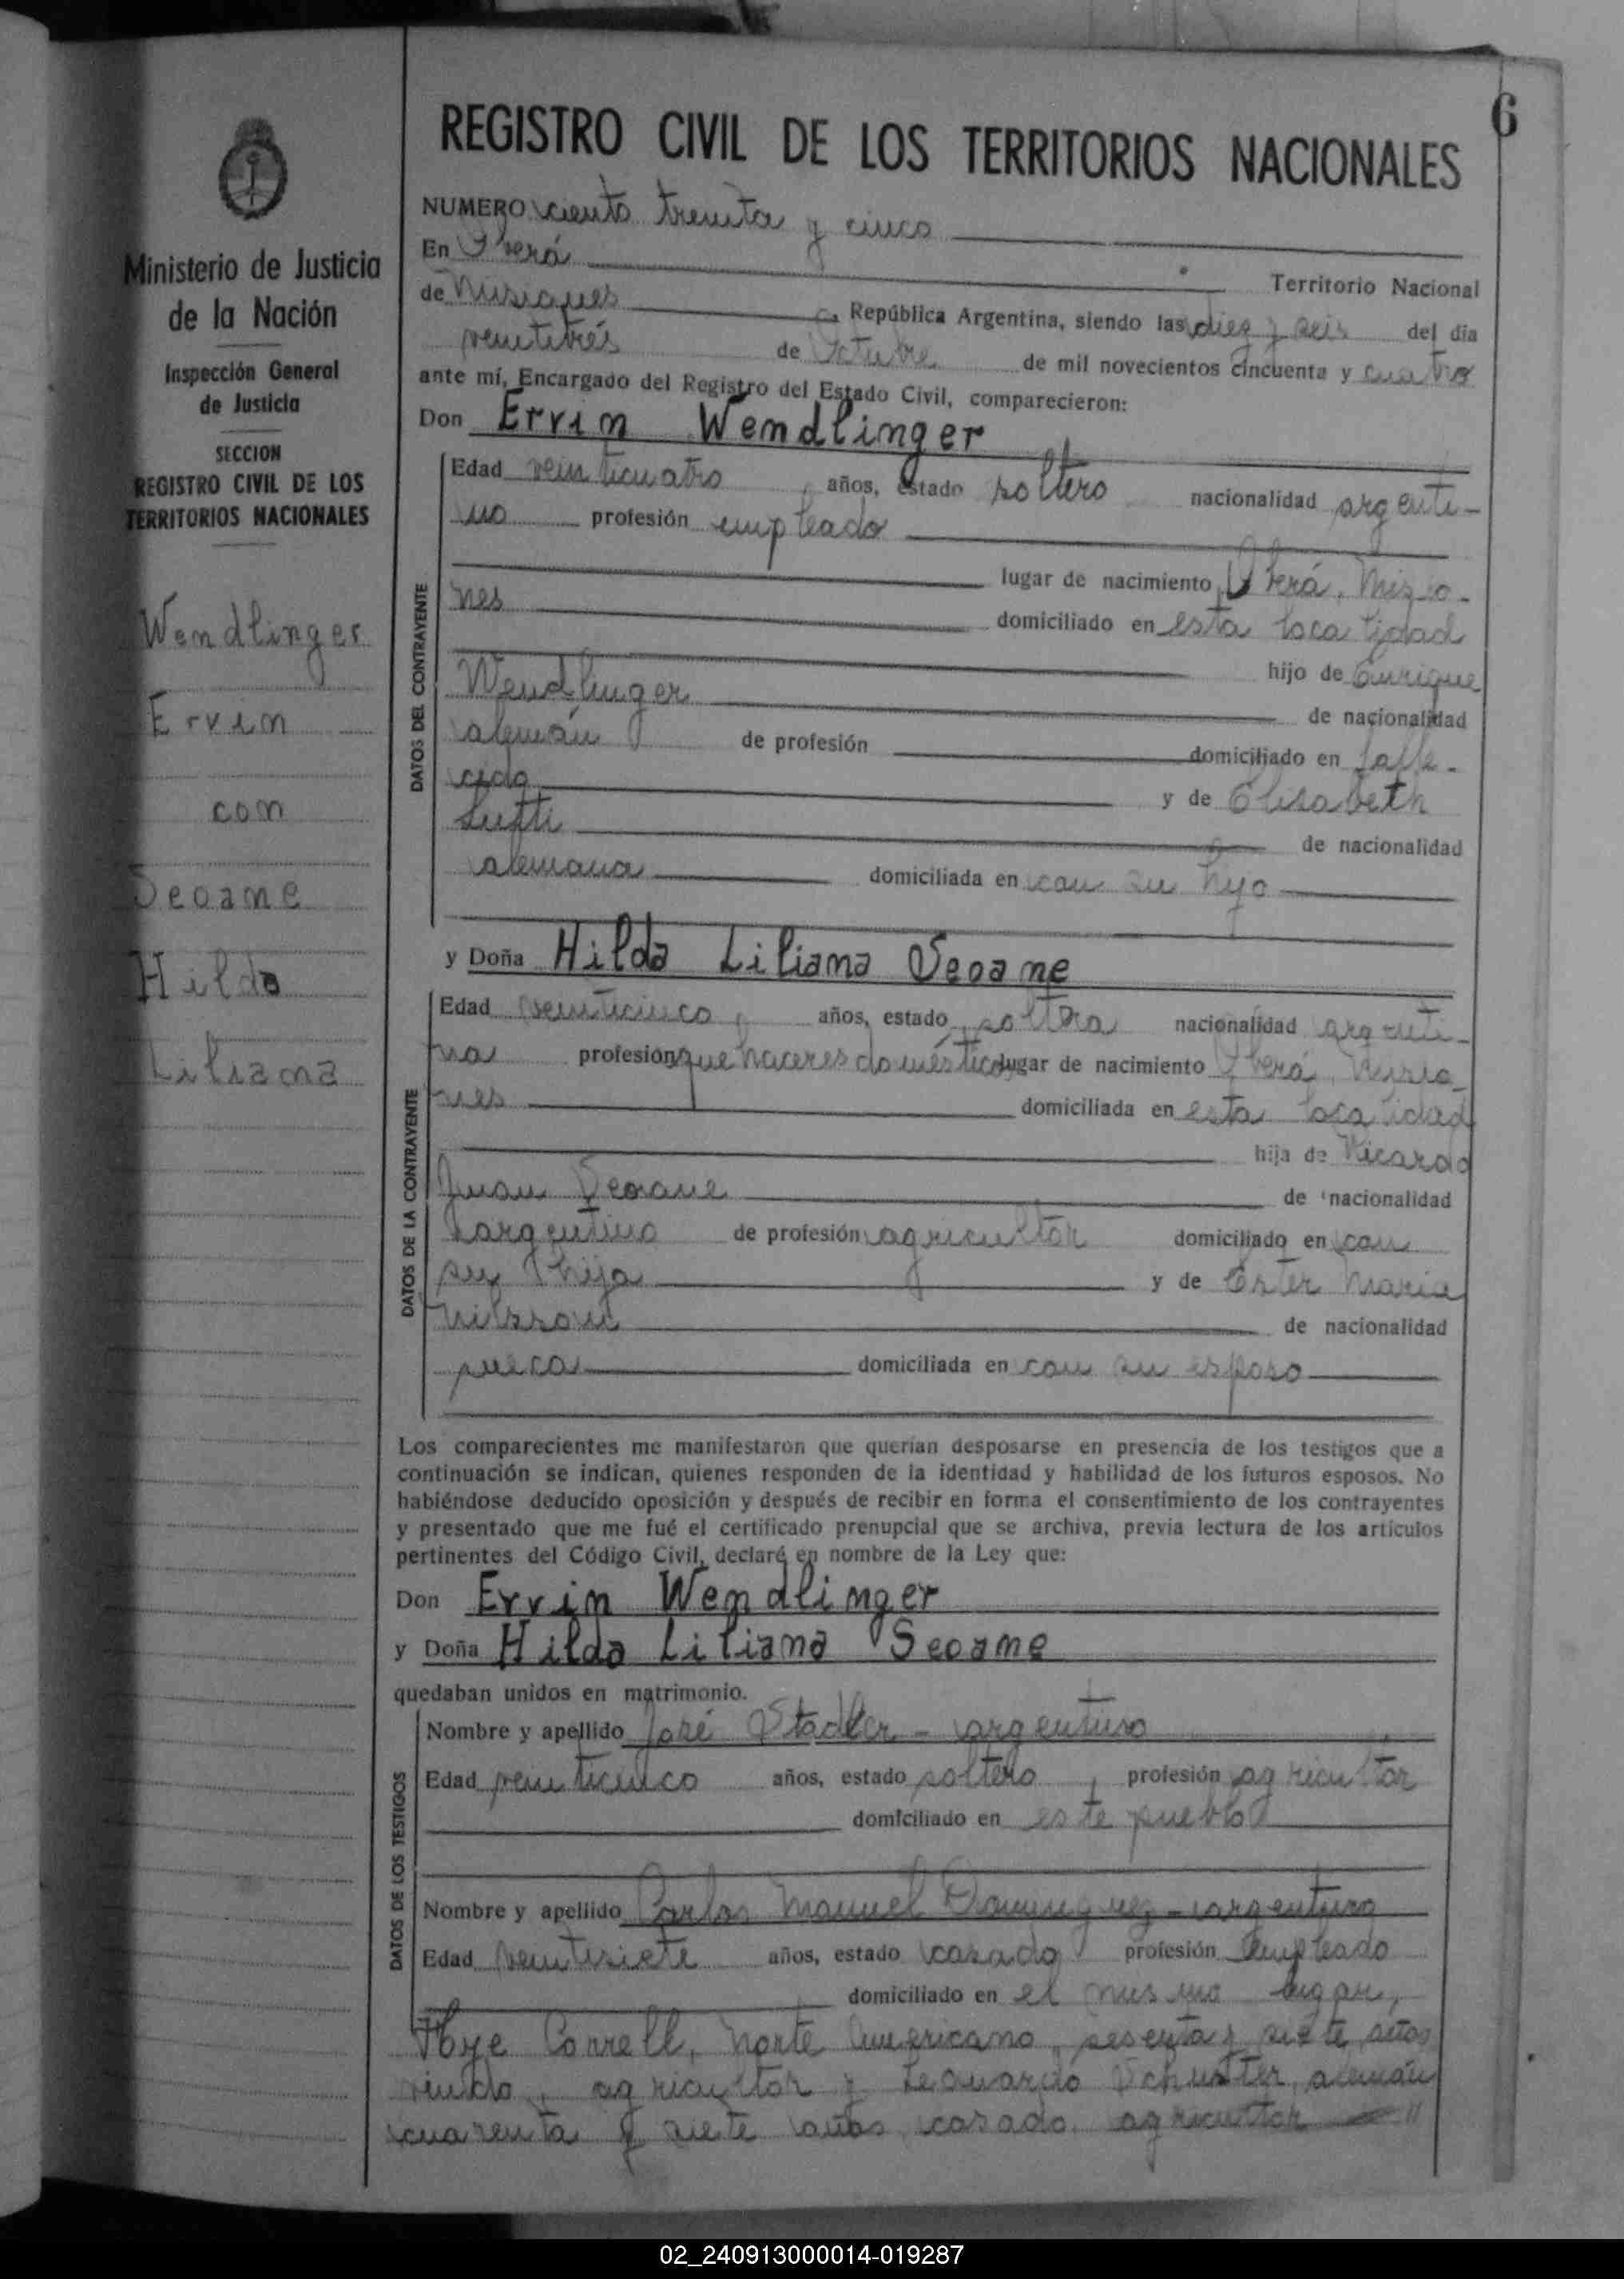 6
REGISTRO CIVIL DE LOS TERRITORIOS NACIONALES
Ministerio de Justicia
de la Nación
Inspección General
de Justicia
SECCION
REGISTRO CIVIL DE LOS
TERRITORIOS NACIONALES
Wendlinger
Ervin
con
Seoane
Hilda
Liliana
NUMERO ciento treinta y cinco
En Oberá Territorio Nacional
de Misiones, República Argentina, siendo las diez y seis del día
veintitrés de Octubre de mil novecientos cincuenta y cuatro
ante mí, Encargado del Registro del Estado Civil, comparecieron:
Don Ervin Wendlinger
DATOS DEL CONTRAYENTE
Edad veinticuatro años, estado soltero nacionalidad argenti-
no profesión empleado
lugar de nacimiento Oberá, Misio-
nes domiciliado en esta localidad
hijo de Enrique
Wendlinger de nacionalidad
alemán de profesión domiciliado en falle-
cido y de Elisabeth
de nacionalidad
alemana domiciliada en con su hijo
y Doña Hilda Liliana Seoane
DATOS DE LA CONTRAYENTE
Edad veinticinco años, estado soltera nacionalidad argenti-
na profesión quehaceres domésticos lugar de nacimiento Oberá, Misio-
nes domiciliada en esta localidad
hija de Ricardo
Juan Seoane de nacionalidad
argentino de profesión agricultor domiciliado en con
su hija y de Ester Maria
Nilsson de nacionalidad
sueca domiciliada en con su esposo
Los comparecientes me manifestaron que querían desposarse en presencia de los testigos que a
continuación se indican, quienes responden de la identidad y habilidad de los futuros esposos. No
habiéndose deducido oposición y después de recibir en forma el consentimiento de los contrayentes
y presentado que me fué el certificado prenupcial que se archiva, previa lectura de los artículos
pertinentes del Código Civil, declaré en nombre de la Ley que:
Don Ervin Wendlinger
y Doña Hilda Liliana Seoane
quedaban unidos en matrimonio.
DATOS DE LOS TESTIGOS
Nombre y apellido José Stadler - argentino
Edad veinticinco años, estado soltero, profesión agricultor
domiciliado en este pueblo
Nombre y apellido Carlos Manuel Dominguez - argentino
Edad veintisiete años, estado casado profesión empleado
domiciliado en el mismo lugar,
Correll, norte americano, sesenta y siete años
viudo, agricultor y Leonardo Schuster, alemán
cuarenta y siete años, casado, agricultor
02_240913000014-019287